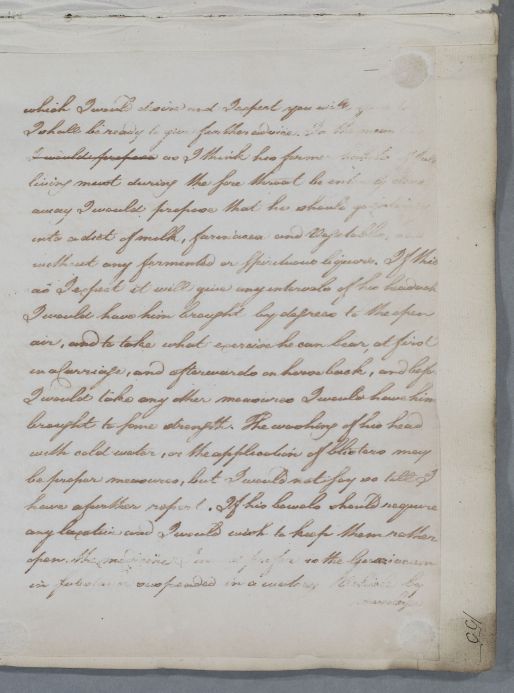 which I would desire and I expect you will give
I shall be ready to give further advice. In the mean
I would propose as I think his former habits of full
living must during the sore throat be entirely done
away I would propose that he should go entirely
into a diet of milk, farinacea and Vegetables, and
without any fermented or Spirituous liquors. If this
as I expect it will give any intervals of his headach
I would have him brought by degrees to the open
air, and to take what exercise he can bear, at first
in a Carriage, and afterwards on horseback, and before
I would take any other measures I would have him
brought to some strength. The washing of his head
with cold water, or the application of blisters may
be proper measures, but I would not say so till I
have a further report. If his bowels should require
any laxative and I would wish to keep them rather
open, the medicine I would prefer is the Guaiacum
in substance suspended in a watery
55